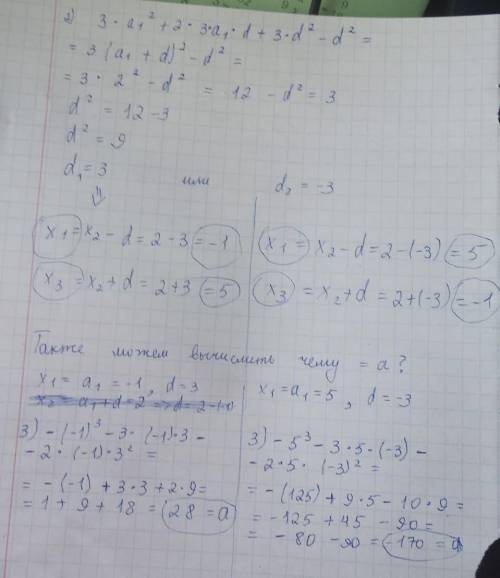 2) 3·a₁² + 2·3·a₁·d + 3·d² - d² =
= 3(a₁ + d)² - d² =
= 3·2² - d² = 12 - d² = 3
d² = 12 - 3
d² = 9
d₁ = 3 или d₂ = -3
⇓
x₁ = x₂ - d = 2 - 3 = -1
x₃ = x₂ + d = 2 + 3 = 5
x₁ = x₂ - d = 2 - (-3) = 5
x₃ = x₂ + d = 2 + (-3) = -1
Также можем вычислить чему = a?
x₁ = a₁ = -1, d = 3
x₂ = a₁ + d = 2 => d = 2 -
3) - (-1)³ - 3·(-1)·3 -
- 2·(-1)·3² =
= - (-1) + 3·3 + 2·9 =
= 1 + 9 + 18 = 28 = a
x₁ = a₁ = 5, d = -3
3) - 5³ - 3·5·(-3) -
- 2·5·(-3)² =
= - (125) + 9·5 - 10·9 =
= -125 + 45 - 90 =
= - 80 - 90 = -170 = a